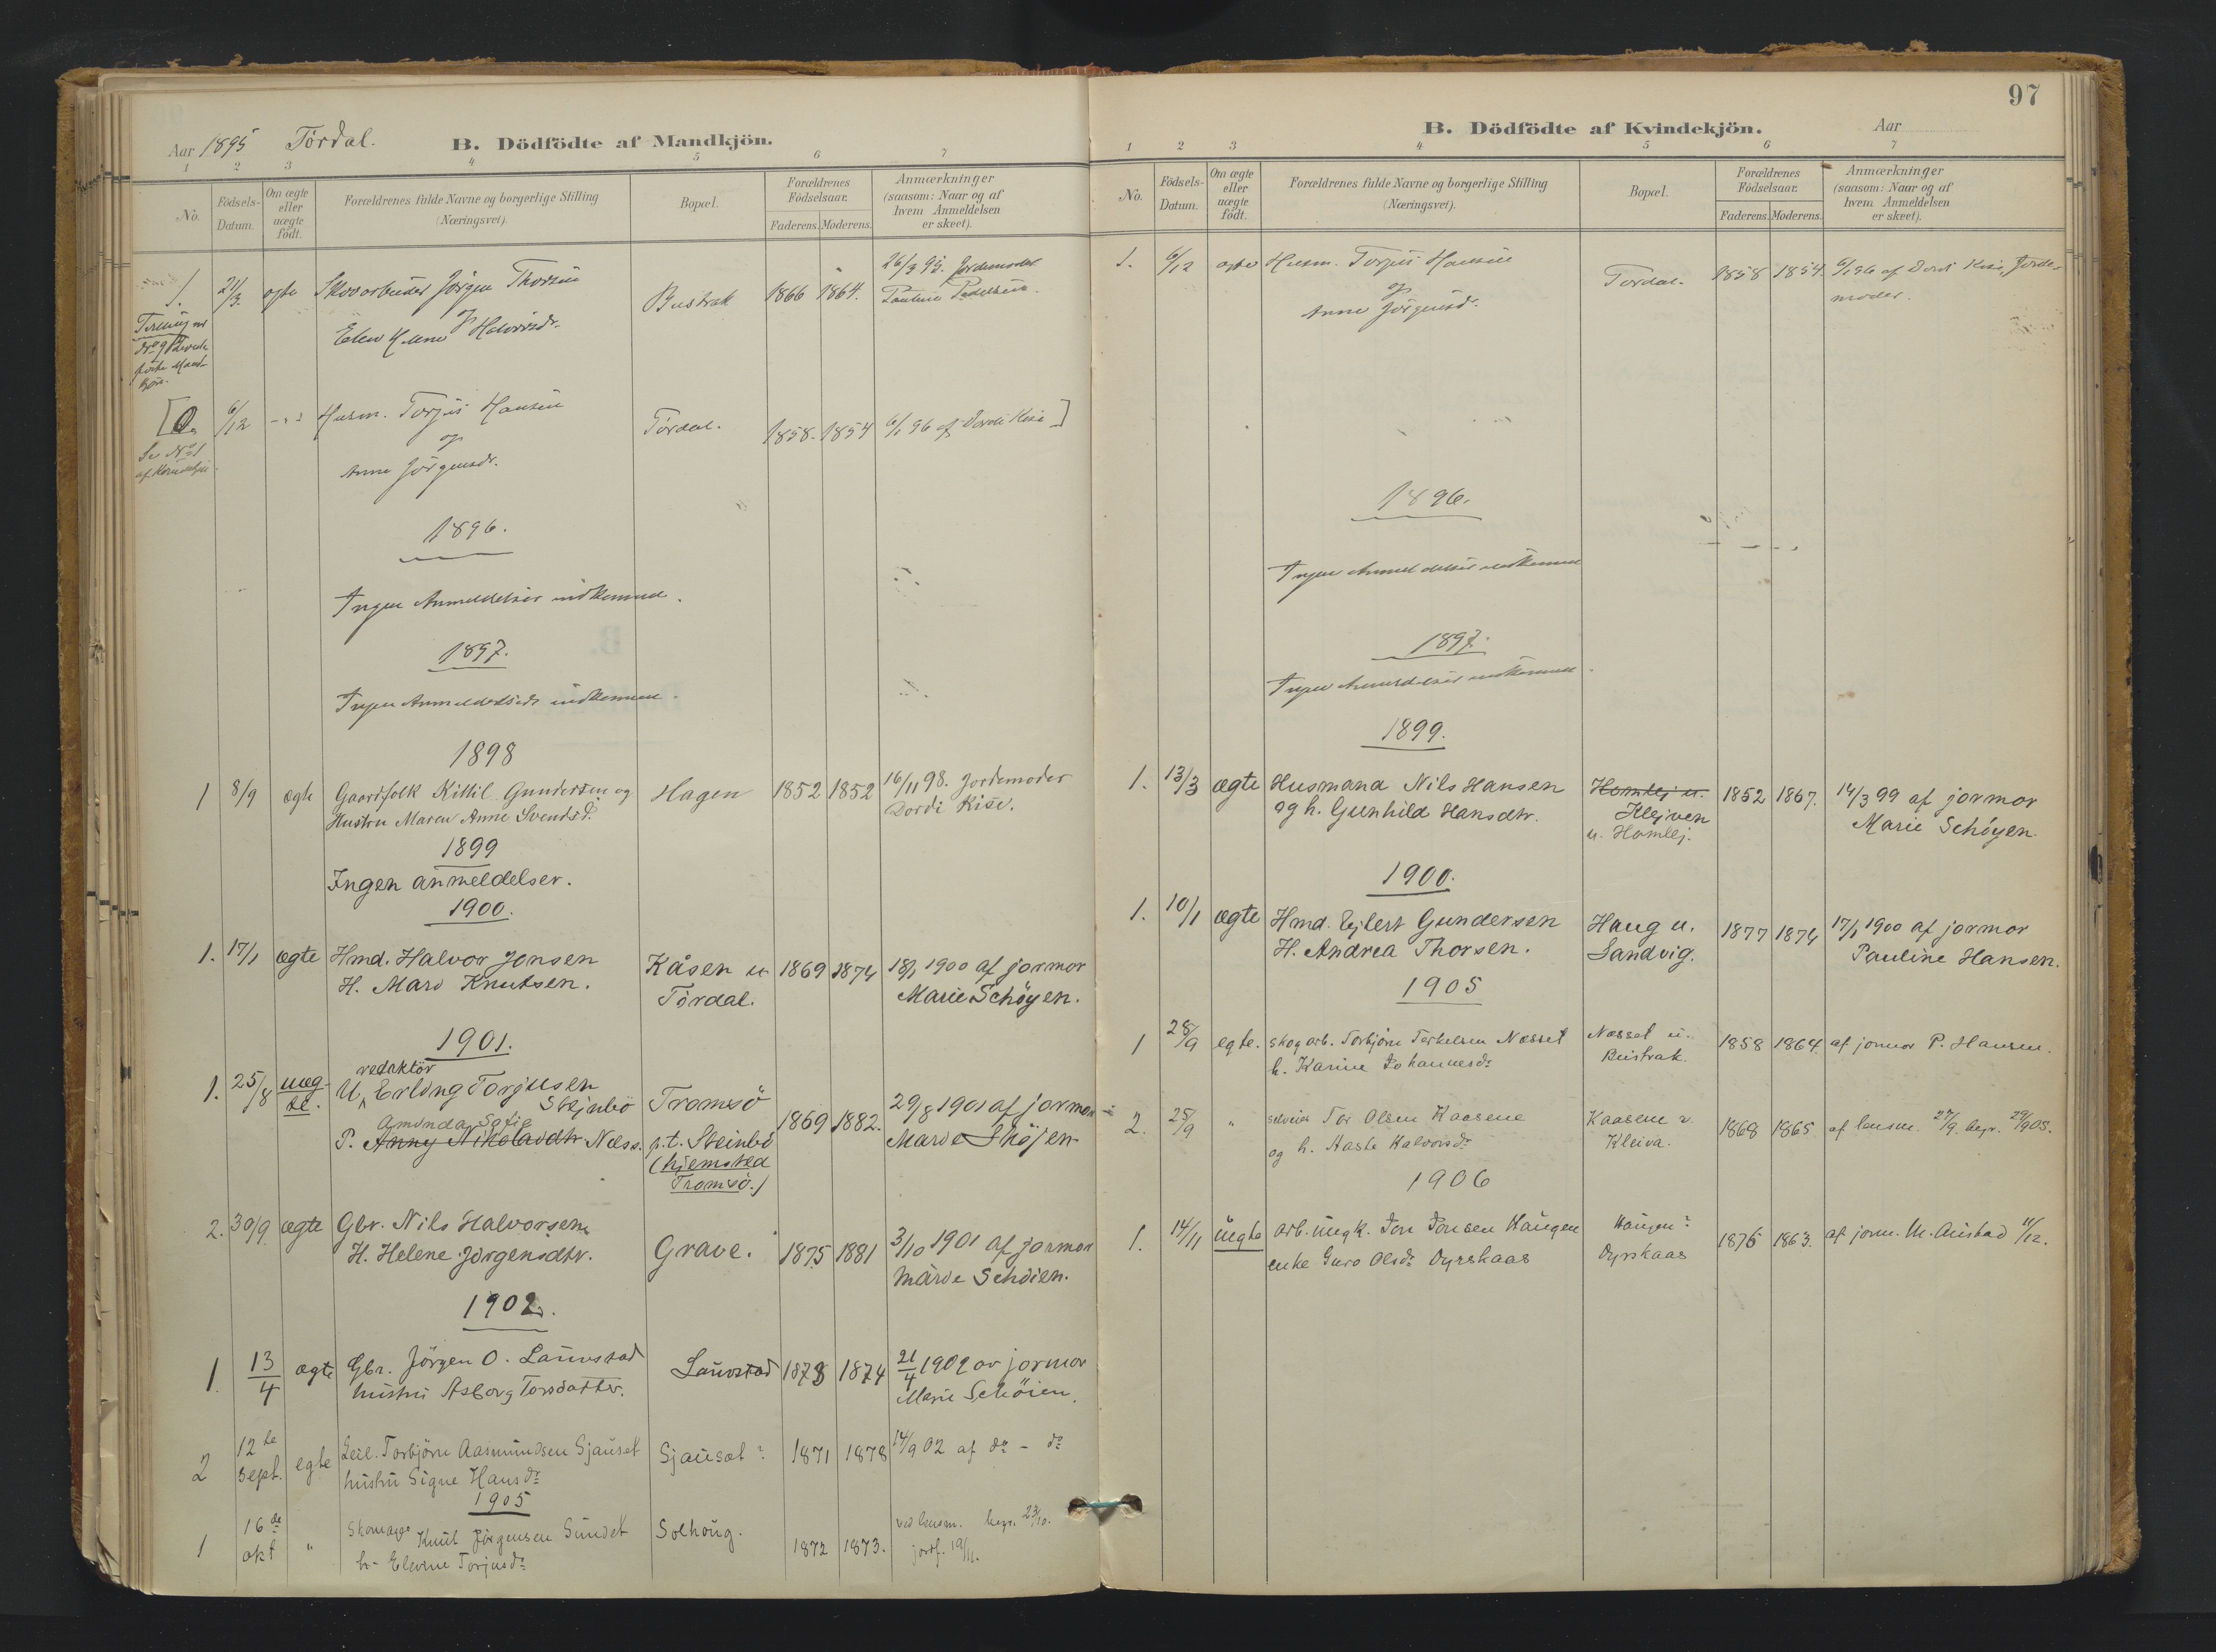 Aar 1895 Tördal. B. Dödfödte af Mandkjön.
1 2 3 4 5 6 7
No.
Födsels-Datum.
Om ægte eller uægte födt.
Forældrenes fulde Navne og borgerlige Stilling (Næringsvei).
Bopæl.
Forældrenes Födselsaar.
Faderens. Moderens.
Anmærkninger (saasom: Naar og af hvem Anmeldelsen er skeet).
1. 21/3 ægte Skovarbeider Jörgen Thorsen Bustrak 1866 1864. 26/3 95. Jordemoder
og Pauline
Elen Helene Halvorsdr.
[ 6/12 Husm. Torjus Hansen Tördal. 1858- 1854 6/1 96 af Dordi Kise ]
og
Anne Jörgensdr.
Se No 1
af Kvindekjön.
1896.
Ingen Anmeldelser indkommen.
1897.
Ingen Anmeldelser indkommen.
1898
1 8/9 ægte Gaardfolk Kittil Gundersen og Hagen 1852 1852 16/11 98. Jordemoder
Hustru Maren Anne Svendsd. Dordi Kise.
1899
Ingen anmeldelser.
1900.
1. 17/1 ægte Hmd. Halvor Jonsen Kåsen u. 1869 1874 18/1 1900 af jormor
H. Mari Knutsen. Tördal. Marie Schöyen.
1901.
redaktör
1. 25/8 uæg- U. Erling Torjusen Tromsö 1869 1882. 29/8 1901 af jormor
te. Steinbö
Amunda Sofie
P. Anny Nikolaidtr Næss. p.t. Steinbö Marie Sköjen
(hjemsted
Tromsö.)
2. 30/9 ægte Gbr. Nils Halvorsen Grave. 1875 1881 3/10 1901 af jormor
H. Helene Jörgensdtr. Marie Schöien.
1902.
1. 13/4 ægte Gbr. Jörgen O. Laurstad Laurstad 1878 1874 21/4 1902 av jormor
hustru Asborg Torsdatter. Marie Schöien.
2 12te Sept. egte Leil. Torbjörn Aasmundsen Sjauset Sjauset 1871 1878 14/9 02 af do - do
hustru Signe Hansdr
1905
1 16de okt " Skomager Knut Jörgensen Sundet Solhoug. 1872 1873. ved lensm. begr. 23/10.
h. Elevine Torjusdr jordf. 19/11.
97
B. Dödfödte af Kvindekjön. Aar
1 2 3 4 5 6 7
No.
Födsels-Datum.
Om ægte eller uægte födt.
Forældrenes fulde Navne og borgerlige Stilling (Næringsvei).
Bopæl.
Forældrenes Födselsaar.
Faderens. Moderens.
Anmærkninger (saasom: Naar og af hvem Anmeldelsen er skeet).
1. 6/12 ægte Husm. Torjus Hansen Tördal. 1858 1854. 6/1 96 af Dordi Kise, Jorde-
og moder.
Anne Jörgensd.
1896.
Ingen Anmeldelser indkommen
1897.
Ingen Anmeldelser indkommen.
1899.
1. 13/3 ægte Husmand Nils Hansen Homlej u. 1852 1867. 14/3 99 af jormor
og h. Gunhild Hansdtr. Klejven Marie Schöyen.
u. Homlej.
1900.
1. 10/1 ægte Hmd. Ejlert Gundersen Haug u. 1877 1874 17/1 1900 af jormor
H. Andrea Thorsen. Sandvig. Pauline Hansen.
1905
1 28/9 egte. skogarb. Torbjörn Terkelsen Næsset Næsset u. 1858 1864. af jormor P. Hansen.
h. Karine Johannesdr Bustrak.
2. 25/9 " Tor Olsen Kaasene Kaasene 1868 1865 af lensm. 27/9. begr. 29/9 05.
og h. Aaste Halvorsdr Kleiva.
1906
1. 14/11 uegte arb. ungk. Jon Jonsen Haugen Haugen 1876 1863. af jorm. M. Austad 11/12.
enke Guro Olsdr Dyrskaas Dyrskaas